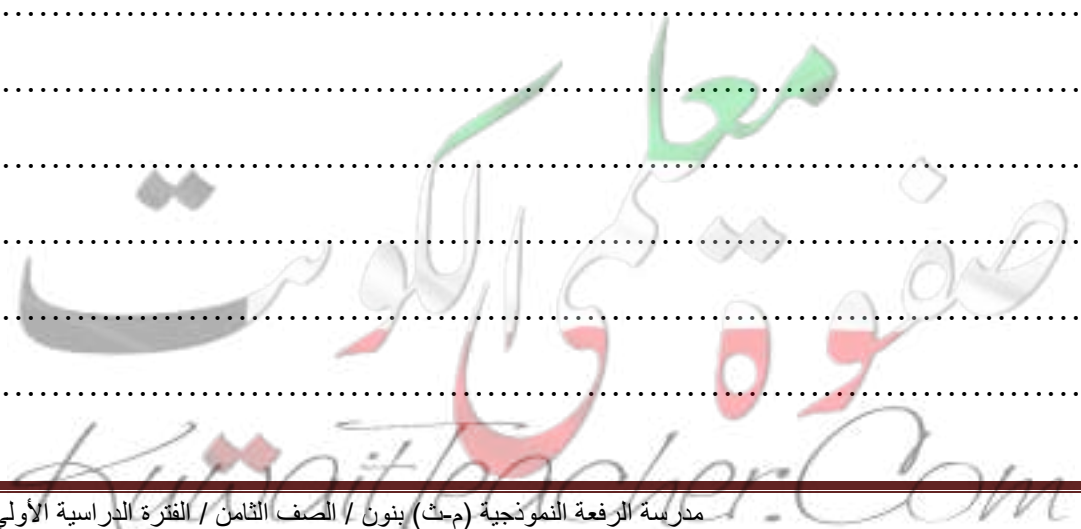 صفوة معلمى الكويت
KuwaitTeacher.Com
مدرسة الرفعة النموذجية (م-ث) بنون / الصف الثامن / الفترة الدراسية الأولى